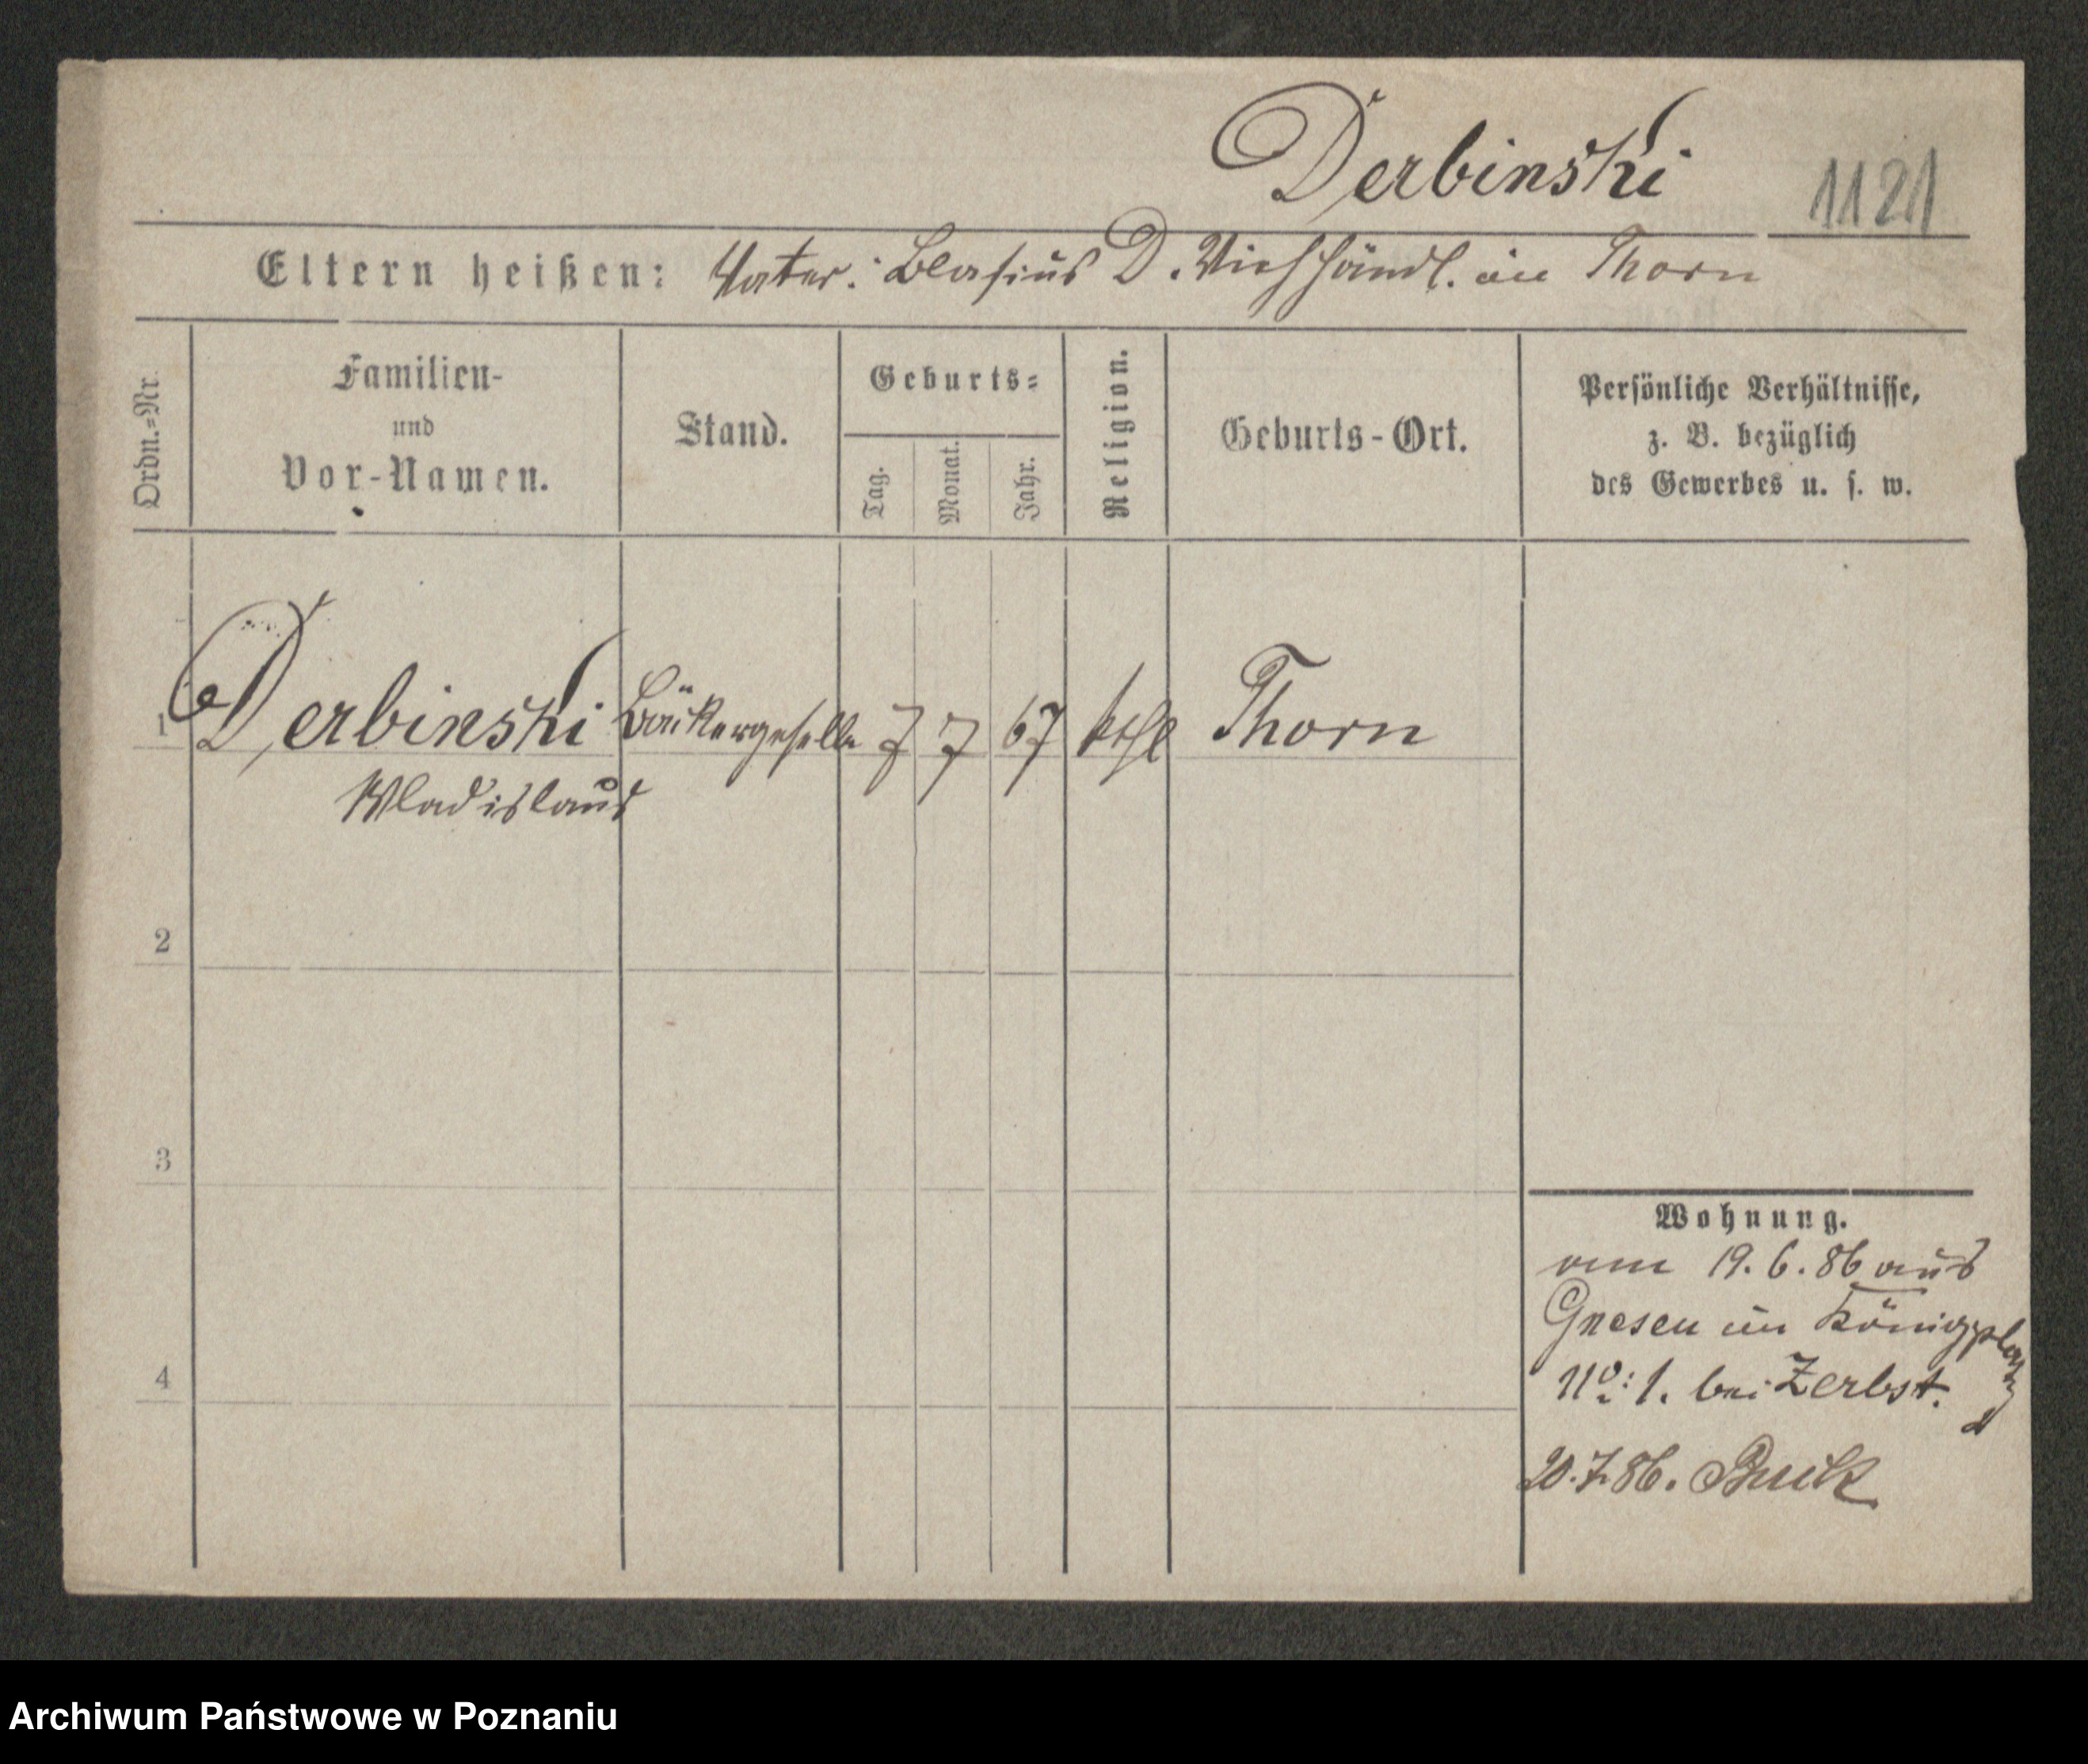 Derbinski
1121
Eltern heißen: Vater: Blasius D. Viehhändl. in Thorn
Ordn.-Nr.
Familien-
und
Vor-Namen.
Stand.
Geburts-
Tag.
Monat.
Jahr.
Religion.
Geburts-Ort.
Persönliche Verhältnisse,
z. B. bezüglich
des Gewerbes u. s. w.
1 Derbinski Bäckergeselle 7 7 67 kthl Thorn
Wladislaus
2
3
4
Wohnung.
vom 19. 6. 86 aus
Gnesen in Königsplatz
No: 1. bei Zerbst.
20. 7. 86. Buck
Archiwum Państwowe w Poznaniu